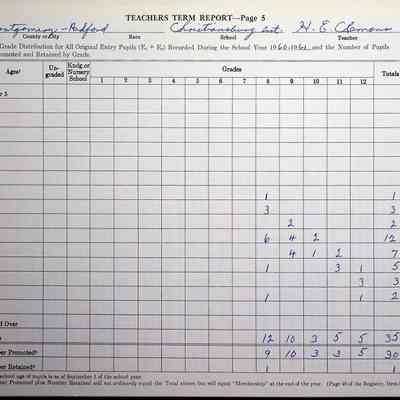 TEACHERS TERM REPORT—Page 5
Radford Christiansburg Inst. H. E. Clemons
County or City Race School Teacher
Grade Distribution for All Original Entry Pupils (E₁ + E₂) Recorded During the School Year 1960-1961, and the Number of Pupils
omoted and Retained by Grade.
Ages¹ Un-graded Kndg. or Nursery School Grades Totals
1 2 3 4 5 6 7 8 9 10 11 12
r 5
1 1
3 3
2 2
6 4 2 12
4 1 2 7
1 3 1 5
3 3
1 1 2
d Over
12 10 3 5 5 35
ber Promoted² 9 10 3 3 5 30
ber Retained² 1 1
school age of pupils is as of September 1 of the school year.
ber Promoted plus Number Retained will not ordinarily equal the Total above but will equal "Membership" at the end of the year. (Page 40 of the Registry, Item